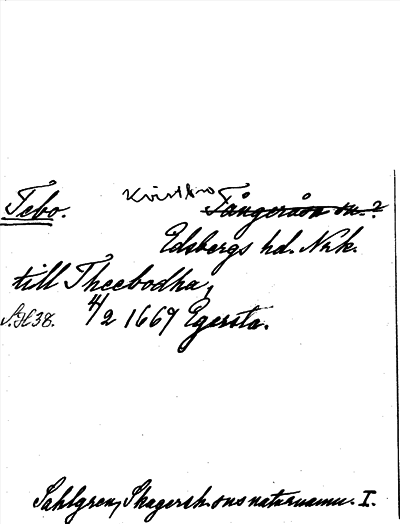 Tebo. Kvistbro Tångeråsa sn.?
Edsbergs hd. Nrk.
till Theebodha,
A.H38. 4/2 1669 Egersta.
Sahlgren, Skagersh. sns naturnamn. I.